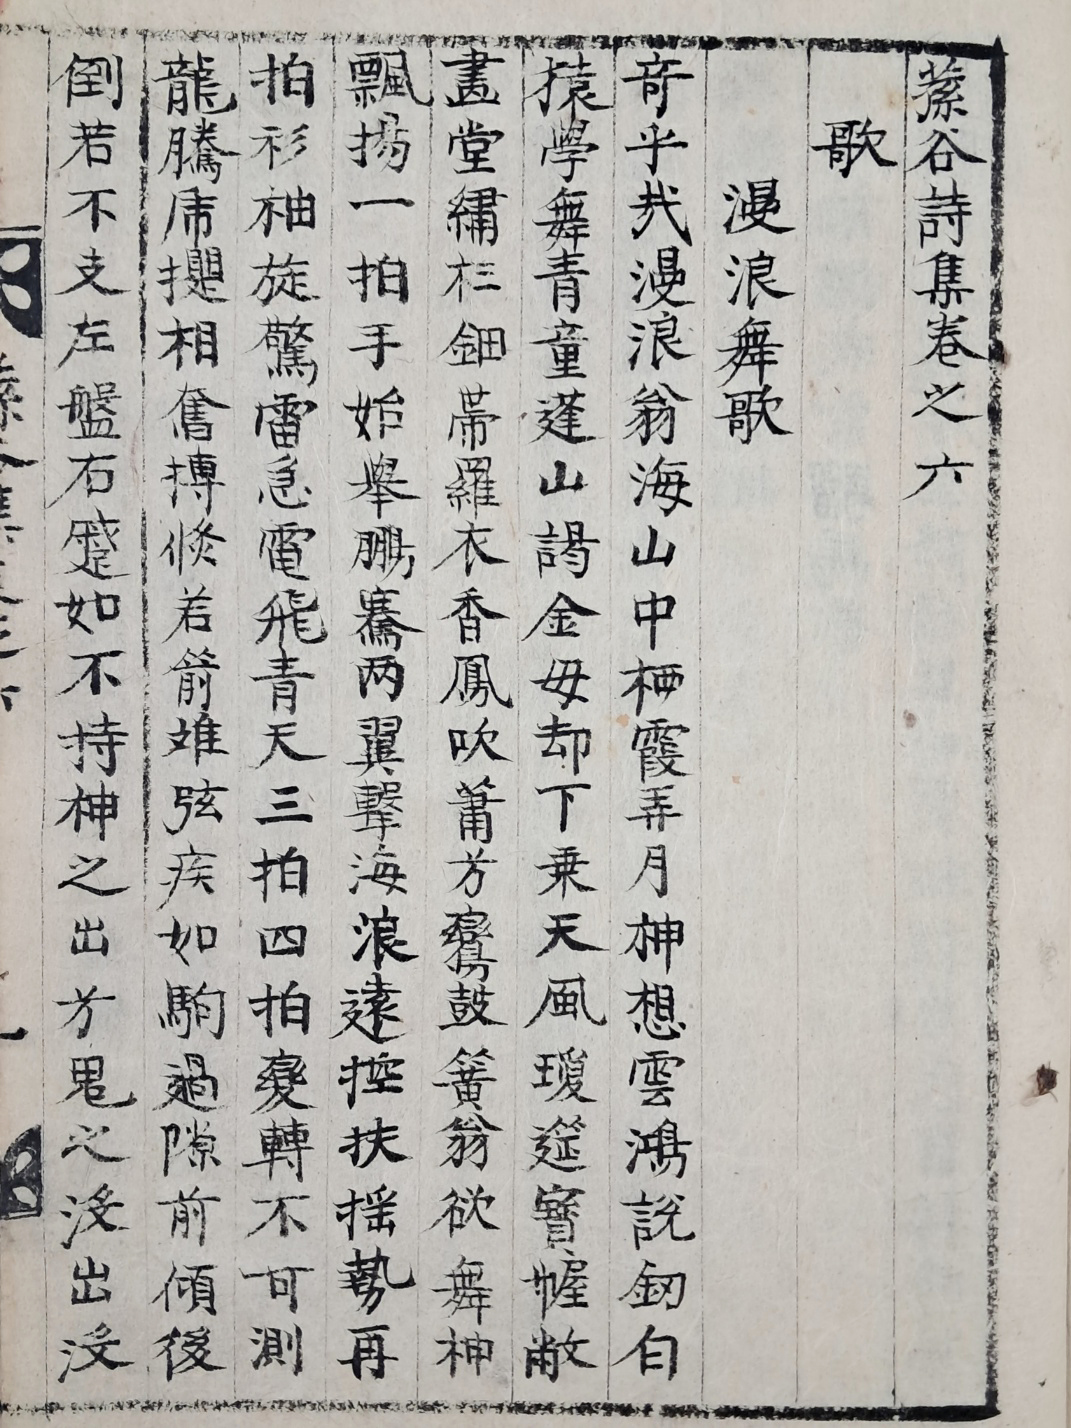 蓀谷詩集卷之六
歌
漫浪舞歌
奇乎㦲漫浪翁海山中栖霞弄月神想雲鴻說釰白
猿學舞青童蓬山謁金母却下乗天風瓊筵寳幄敞
畫堂繡衫鈿帶羅衣香鳳吹簫方鸞鼓簧翁欲舞神
飄揚一拍手始舉鵬騫两翼擊海浪遠控扶揺勢再
拍衫袖旋驚雷急電飛青天三拍四拍變轉不可測
龍騰虎攫相奮搏倏若箭離弦疾如駒過隙前傾後
倒若不支左盤右蹙如不持神之出方鬼之没出没